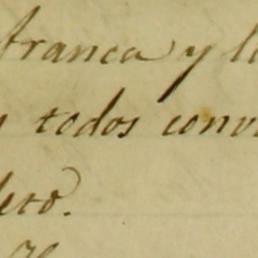 franca y l
todos conv
leto.